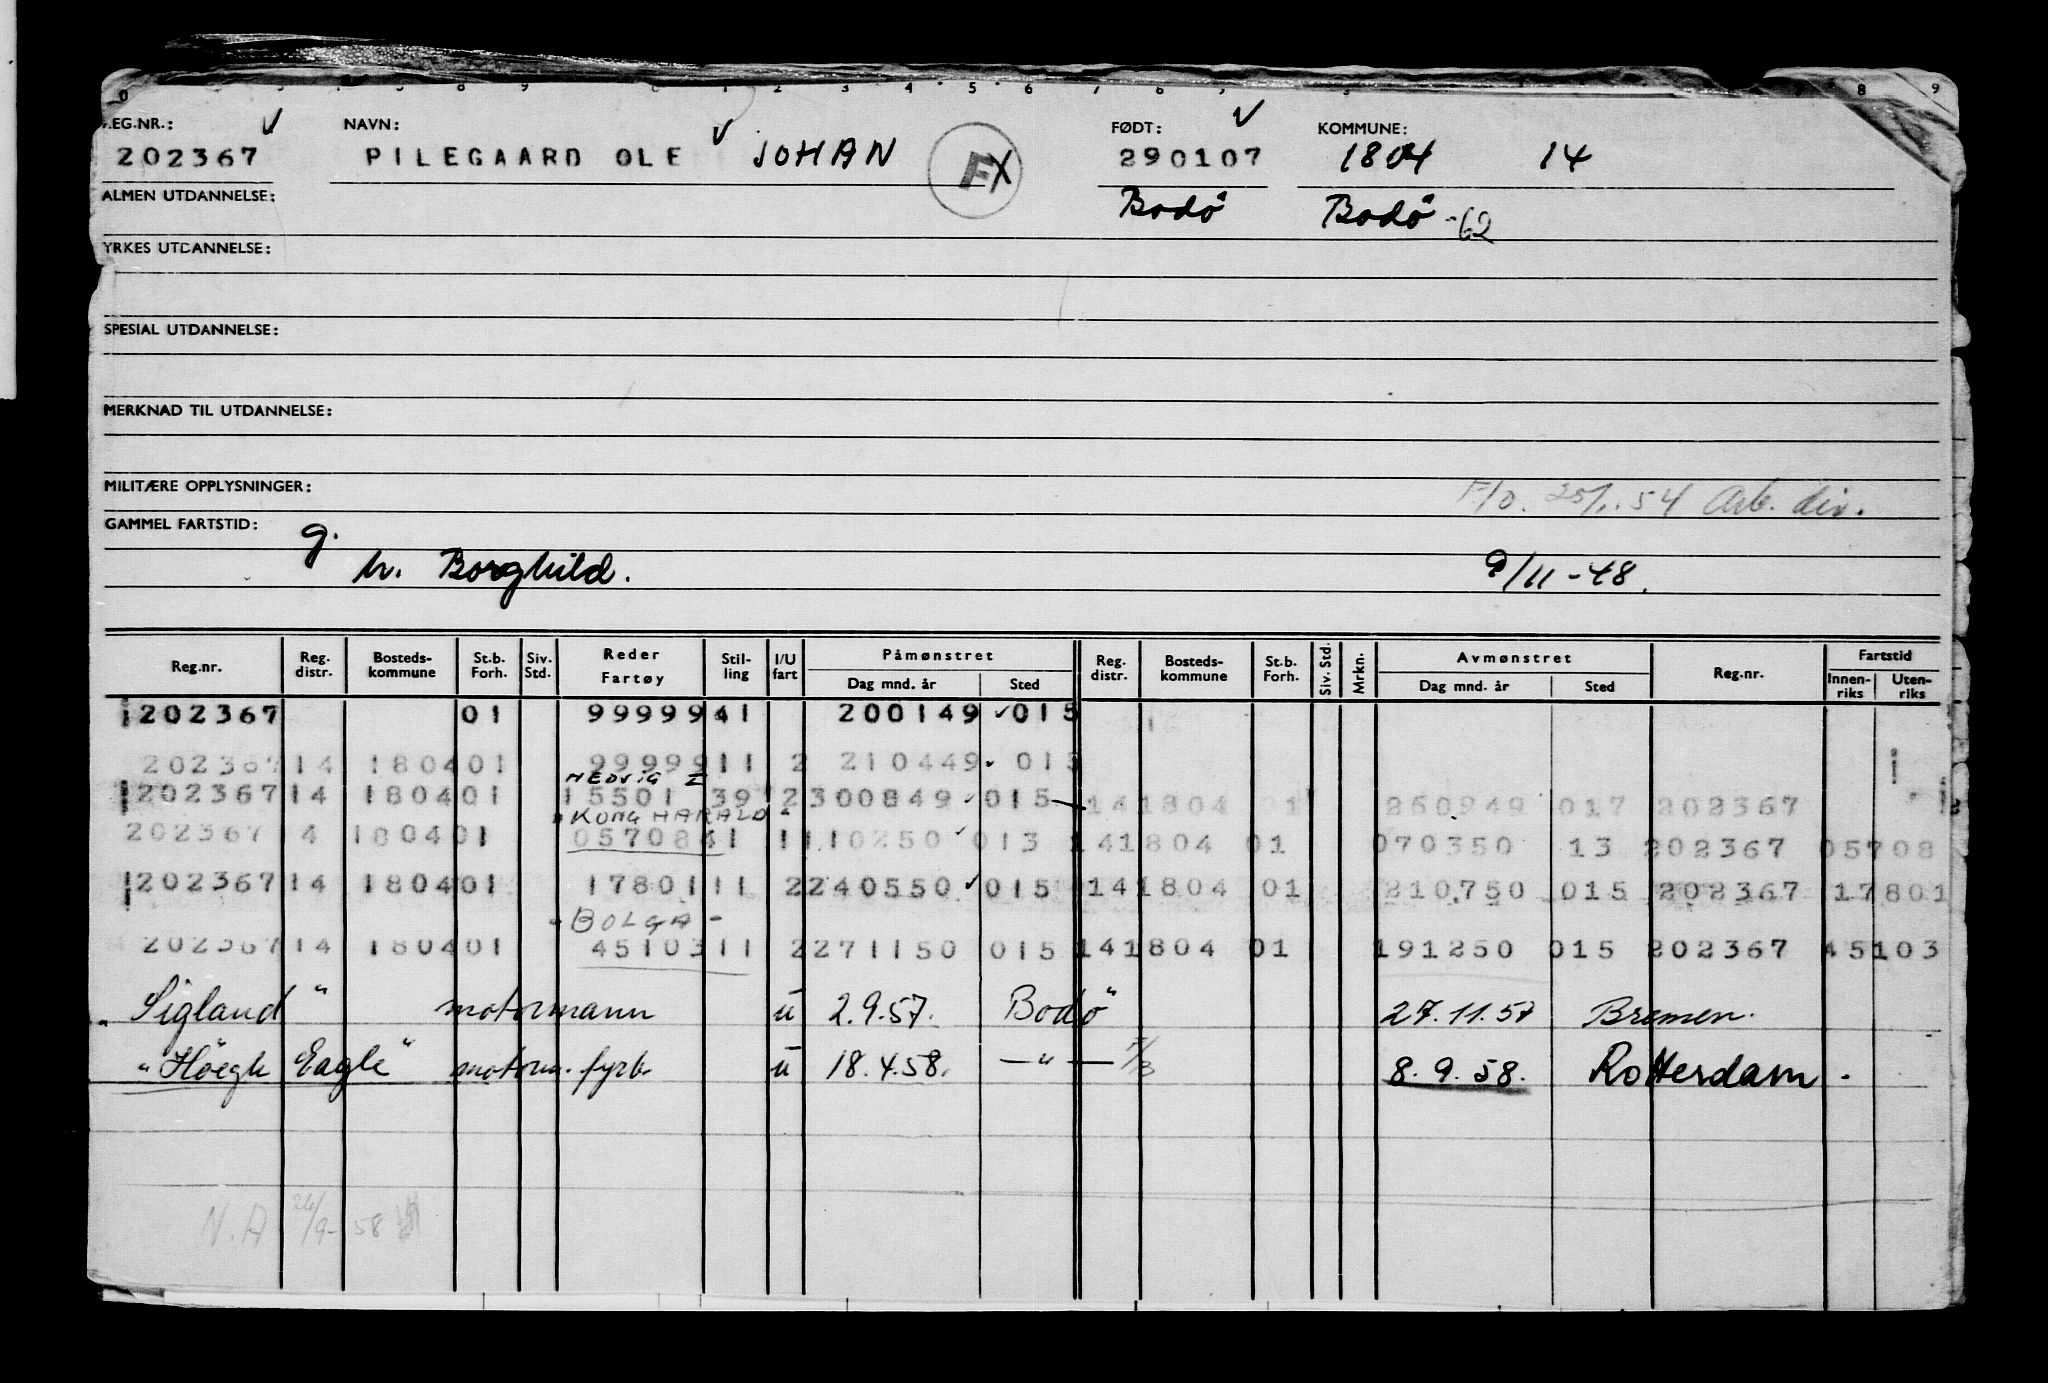 REG.NR.: NAVN: FØDT: KOMMUNE:
202367 PILEGAARD OLE JOHAN FX 290107 1804 14
ALMEN UTDANNELSE: Bodö Bodö -62
YRKES UTDANNELSE:
SPESIAL UTDANNELSE:
MERKNAD TIL UTDANNELSE:
MILITÆRE OPPLYSNINGER: 54 Arb. dir.
GAMMEL FARTSTID: g.
h. Borghild. 9/11-48.
Reg.nr. Reg. distr. Bosteds- kommune St.b. Forh. Siv. Std. Reder Fartøy Stil- ling I/U fart Påmønstret Dag mnd. år Sted Reg. distr. Bosteds- kommune St.b. Forh. Siv. Std. Mrkn. Avmønstret Dag mnd. år Sted Reg.nr. Fartstid Innen- riks Uten- riks
202367 01 99999 41 200149 015
202367 14 1804 01 99999 11 2 210449 015
HEDVIG I
202367 14 1804 01 15501 39 2 300849 015 14 1804 01 260949 017 202367
KONG HARALD
202367 4 1804 01 05708 41 1 110250 013 14 1804 01 070350 13 202367 05708
202367 14 1804 01 17801 11 2 240550 015 14 1804 01 210750 015 202367 17801
- BOLGA -
202367 14 1804 01 45103 11 2 271150 015 14 1804 01 191250 015 202367 45103
"Sigland" motormann u 2.9.57. Bodö 27.11.57 Bremen.
"Höegh Eagle" motorm. fyrb. u 18.4.58. —"— 8.9.58. Rotterdam.
N.A 26/9-58